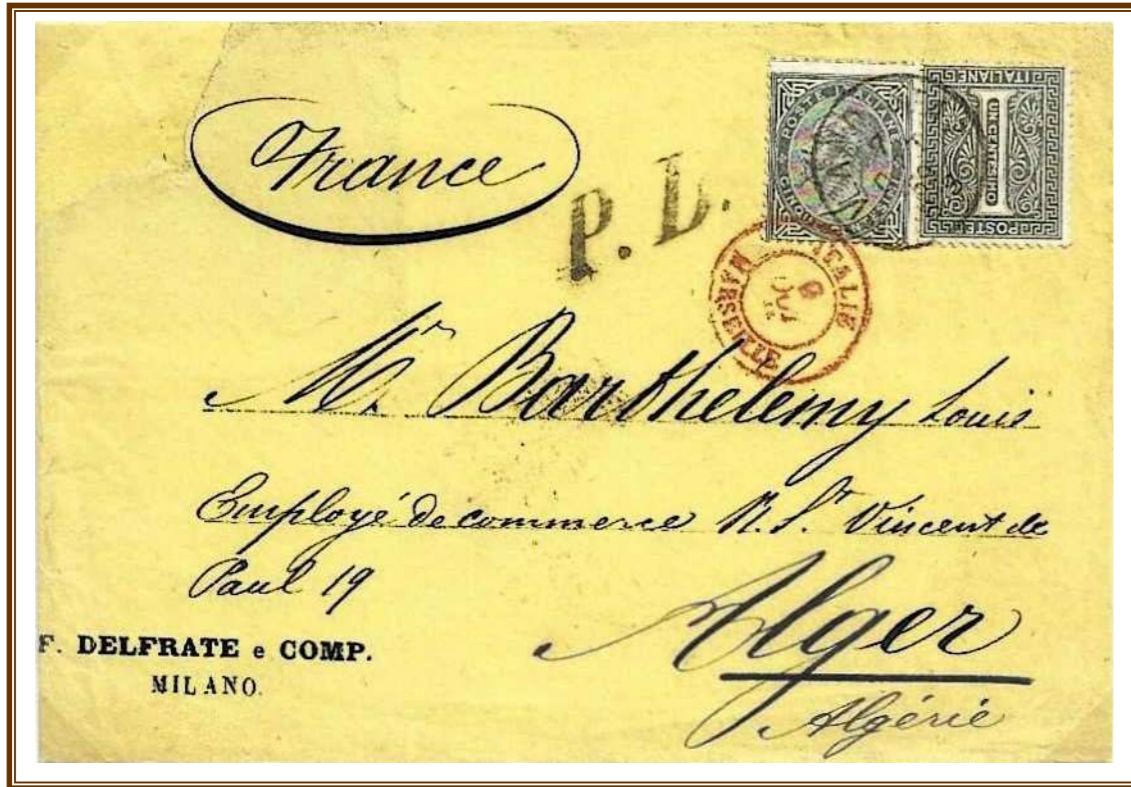 France
P. D.
POSTE ITALIANE
UN CENTESIMO
POSTE ITALIANE
MILANO
ITALIE
9
MARSEILLE
Mr Barthelemy Louis
Employé de commerce R. St Vincent de
Paul 19
Alger
Algérie
F. DELFRATE e COMP.
MILANO.